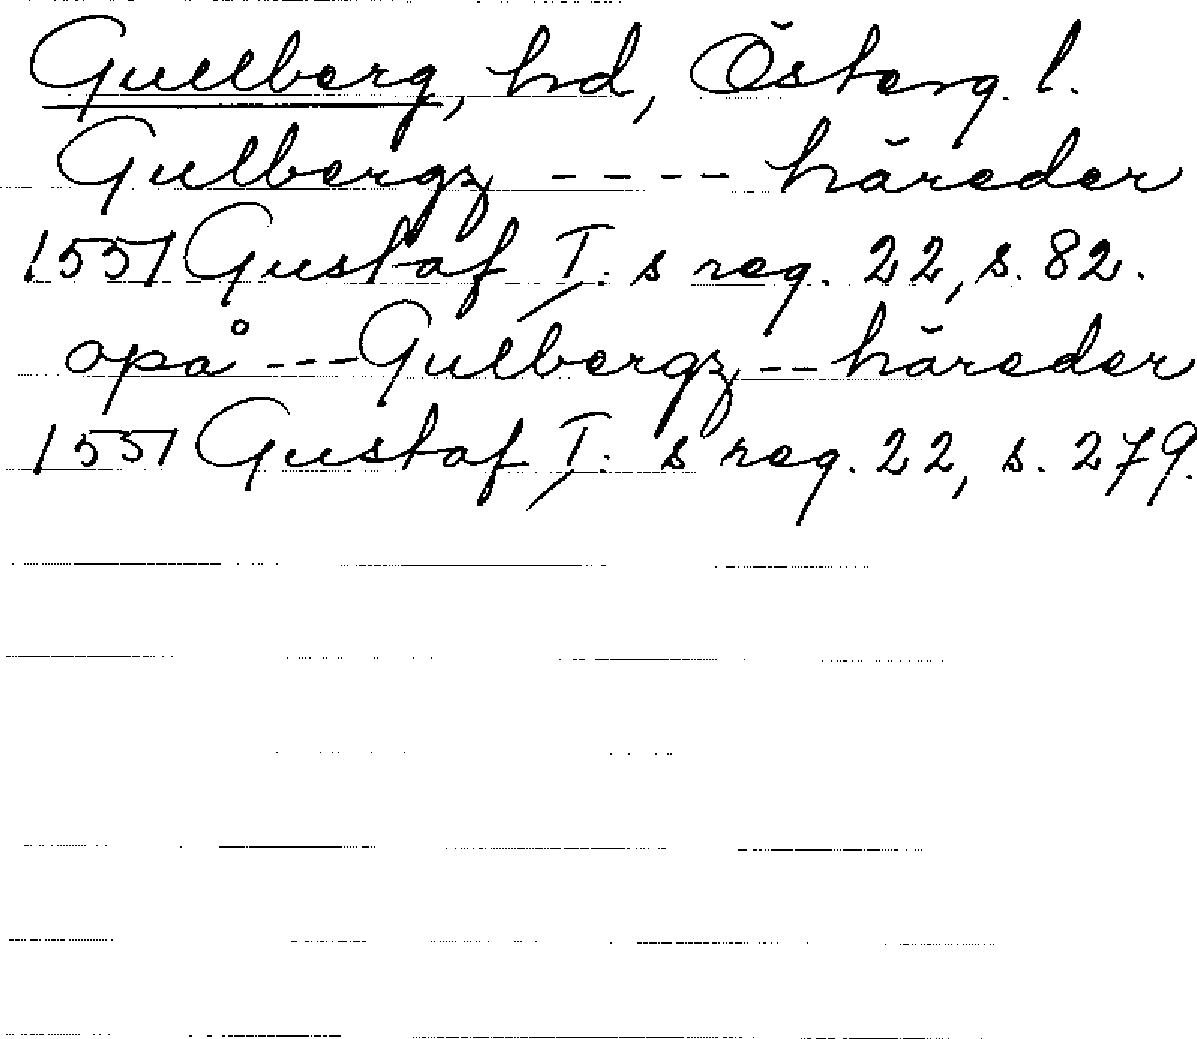 Gullberg, hd, Österg. l.
Gulbergz ---- häreder
1551 Gustaf I: s reg. 22, s. 82.
opå --- Gulbergz -- häreder
1551 Gustaf I: s reg. 22, s. 279.